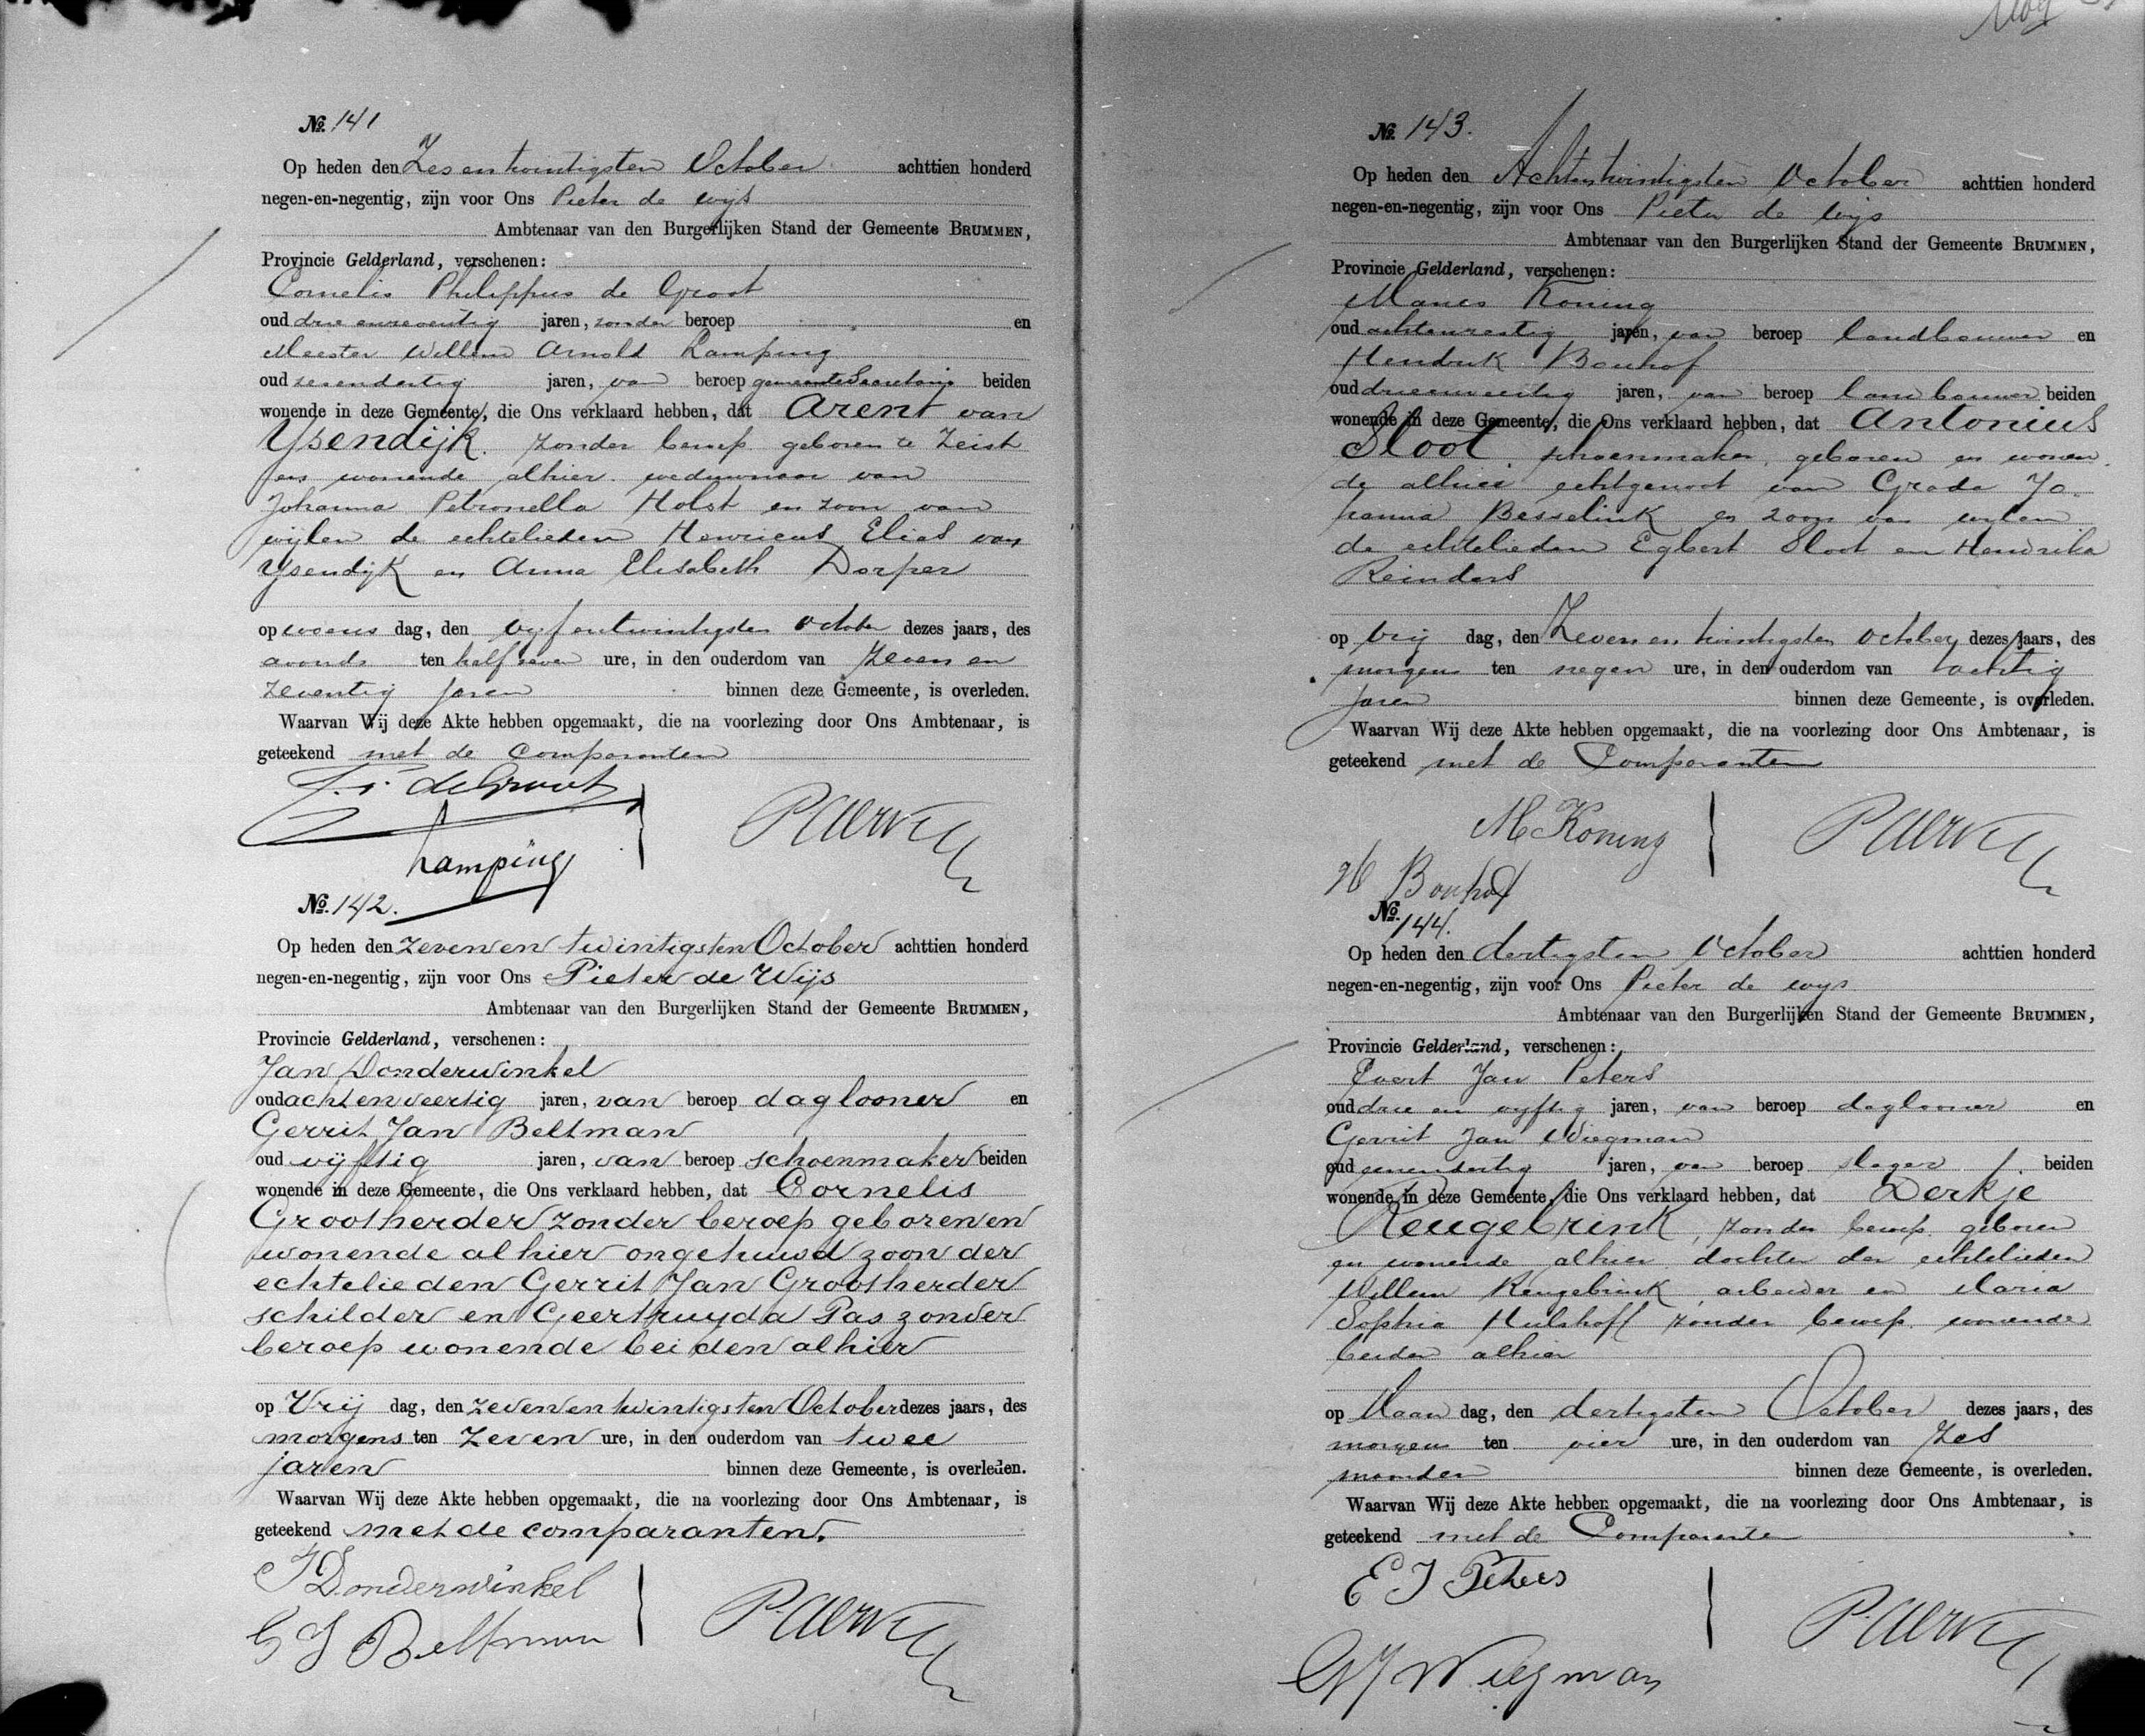 No. 141
Op heden den Zesentwintigsten October achttien honderd
negen-en-negentig, zijn voor Ons Pieter de Wijs
Ambtenaar van den Burgerlijken Stand der Gemeente BRUMMEN,
Provincie Gelderland, verschenen:
Cornelis Philippus de Groot
oud drie enzeventig jaren, zonder beroep en
Meester Willem Arnold Lamping
oud zesendertig jaren, van beroep gemeente Secretaris beiden
wonende in deze Gemeente, die Ons verklaard hebben, dat Arent van
Ysendijk. zonder beroep geboren te Zeist
en wonende alhier weduwnaar van
Johanna Petronella Holst en zoon van
wijlen de echtelieden Henricus Elias van
Ysendijk en Anna Elisabeth Dorper
op woens dag, den vijfentwintigsten October dezes jaars, des
avonds ten half zeven ure, in den ouderdom van zeven en
zeventig jaren binnen deze Gemeente, is overleden.
Waarvan Wij deze Akte hebben opgemaakt, die na voorlezing door Ons Ambtenaar, is
geteekend met de comparanten
de Groot
Lamping
No. 142.
Op heden den zeven en twintigsten October achttien honderd
negen-en-negentig, zijn voor Ons Pieter de Wijs
Ambtenaar van den Burgerlijken Stand der Gemeente BRUMMEN,
Provincie Gelderland, verschenen:
Jan Donderwinkel
oud achtenveertig jaren, van beroep daglooner en
Gerrit Jan Beltman
oud vijftig jaren, van beroep schoenmaker beiden
wonende in deze Gemeente, die Ons verklaard hebben, dat Cornelis
Grootherder zonder beroep geboren en
wonende alhier ongehuwd zoon der
echtelieden Gerrit Jan Grootherder
schilder en Geertruyda Pas zonder
beroep wonende beiden alhier
op Vrij dag, den zeven en twintigsten October dezes jaars, des
morgens ten zeven ure, in den ouderdom van twee
jaren binnen deze Gemeente, is overleden.
Waarvan Wij deze Akte hebben opgemaakt, die na voorlezing door Ons Ambtenaar, is
geteekend met de comparanten.
J Donderwinkel
G J Beltman
No. 143.
Op heden den Achtentwintigsten October achttien honderd
negen-en-negentig, zijn voor Ons Pieter de Wijs
Ambtenaar van den Burgerlijken Stand der Gemeente BRUMMEN,
Provincie Gelderland, verschenen:
Manes Koning
oud achtenzestig jaren, van beroep landbouwer en
Hendrik Bouhof
oud drieenveertig jaren, van beroep landbouwer beiden
wonende in deze Gemeente, die Ons verklaard hebben, dat Antonius
Sloot, schoenmaker, geboren en wonen
de alhier echtgenoot van Grada Jo-
hanna Besselink en zoon van wijlen
de echtelieden Egbert Sloot en Hendrika
Reinders
op vrij dag, den Zeven en twintigsten October dezes jaars, des
morgens ten negen ure, in den ouderdom van tachtig
jaren binnen deze Gemeente, is overleden.
Waarvan Wij deze Akte hebben opgemaakt, die na voorlezing door Ons Ambtenaar, is
geteekend met de Comparanten
M Koning
H Bouhof
No. 144.
Op heden den dertigsten October achttien honderd
negen-en-negentig, zijn voor Ons Pieter de Wijs
Ambtenaar van den Burgerlijken Stand der Gemeente BRUMMEN,
Provincie Gelderland, verschenen:
Evert Jan Peters
oud drie en vijftig jaren, van beroep daglooner en
Gerrit Jan Wiegman
oud eenendertig jaren, van beroep slager beiden
wonende in deze Gemeente, die Ons verklaard hebben, dat Derkje
Reugebrink, zonder beroep geboren
en wonende alhier dochter der echtelieden
Willem Reugebrink, arbeider en Maria
Sophia Hulshoff zonder beroep wonende
beiden alhier
op Maan dag, den dertigsten October dezes jaars, des
morgens ten vier ure, in den ouderdom van Zes
maanden binnen deze Gemeente, is overleden.
Waarvan Wij deze Akte hebben opgemaakt, die na voorlezing door Ons Ambtenaar, is
geteekend met de Comparanten
E J Peters
G J Wiegman